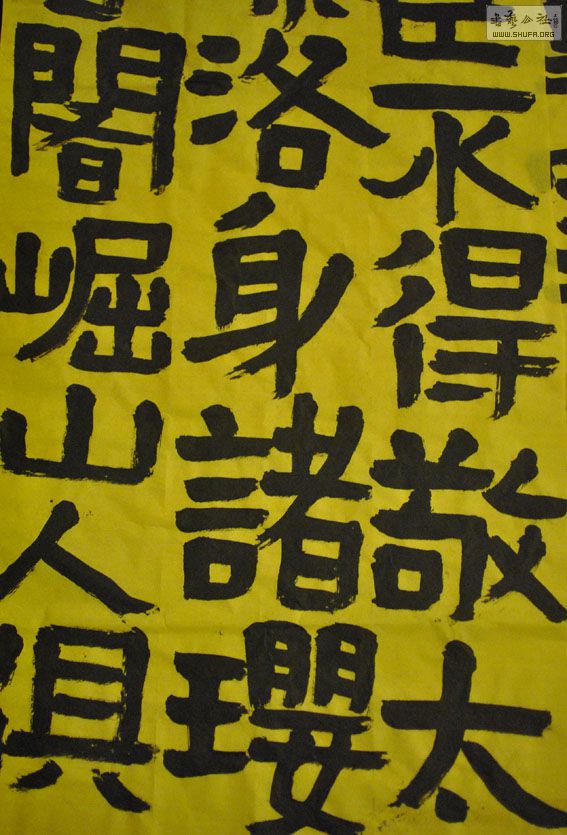 水得敬太
洛身諸瓔
闇崛山人俱
書藝公社
WWW.SHUFA.ORG